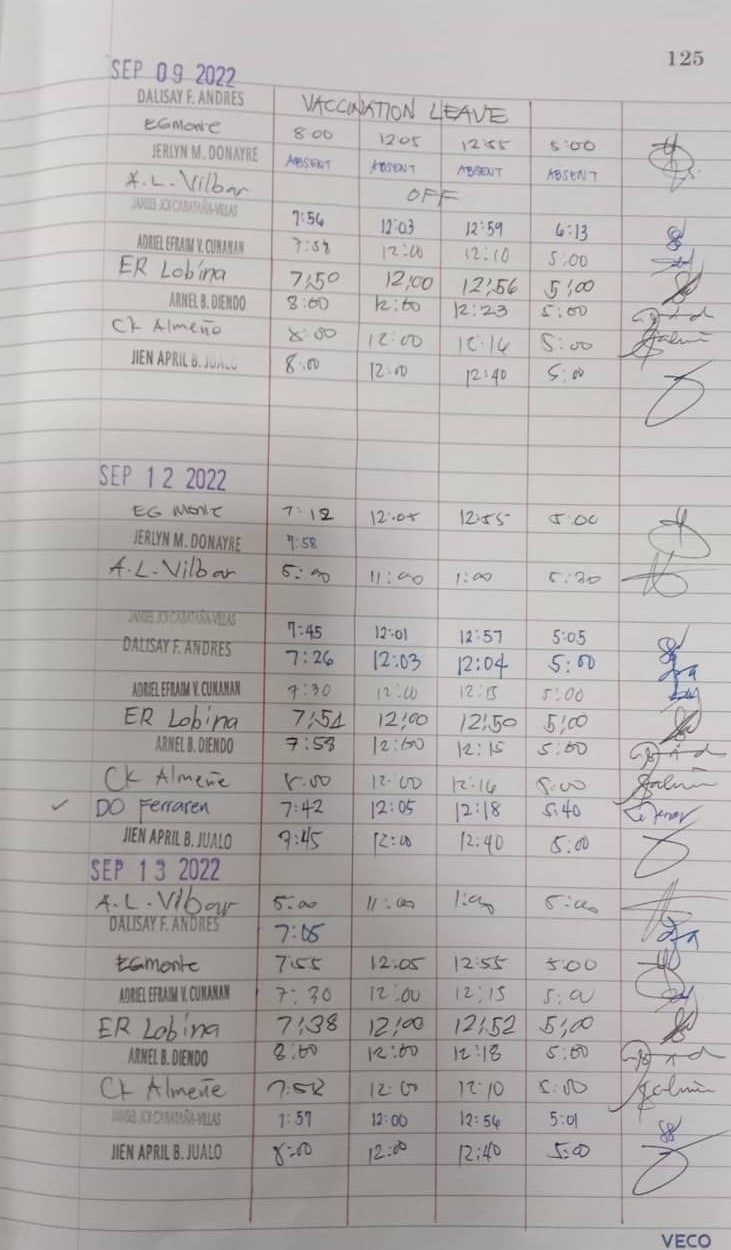 125
SEP 09 2022
DALISAY F. ANDRES VACCINATION LEAVE
EGMonte 8:00 12:05 12:55 5:00
JERLYN M. DONAYRE ABSENT ABSENT ABSENT ABSENT
A.L. Vilbar OFF
7:56 12:03 12:59 6:13
ADRIEL EFRAIM V. CUNANAN 7:58 12:00 12:10 5:00
ER Lobina 7:50 12:00 12:56 5:00
ARNEL B. DIENDO 8:00 12:00 12:23 5:00
CK Almeñe 8:00 12:00 12:16 5:00
JIEN APRIL B. JUALO 8:00 12:00 12:40 5:00
SEP 12 2022
EG Monte 7:12 12:05 12:55 5:00
JERLYN M. DONAYRE 7:58
A.L. Vilbar 5:00 11:00 1:00 5:30
7:45 12:01 12:57 5:05
DALISAY F. ANDRES 7:26 12:03 12:04 5:00
ADRIEL EFRAIM V. CUNANAN 7:30 12:00 12:15 5:00
ER Lobina 7:54 12:00 12:50 5:00
ARNEL B. DIENDO 7:58 12:00 12:15 5:00
CK Almeñe 8:00 12:00 12:16 5:00
✓ DO Ferraren 7:42 12:05 12:18 5:40
JIEN APRIL B. JUALO 7:45 12:00 12:40 5:00
SEP 13 2022
A.L. Vilbar 5:00 11:00 1:00 5:00
DALISAY F. ANDRES 7:05
EGmonte 7:55 12:05 12:55 5:00
ADRIEL EFRAIM V. CUNANAN 7:30 12:00 12:15 5:00
ER Lobina 7:38 12:00 12:52 5:00
ARNEL B. DIENDO 8:00 12:00 12:18 5:00
CK Almeñe 7:52 12:00 12:10 5:00
7:57 12:00 12:56 5:01
JIEN APRIL B. JUALO 8:00 12:00 12:40 5:00
VECO